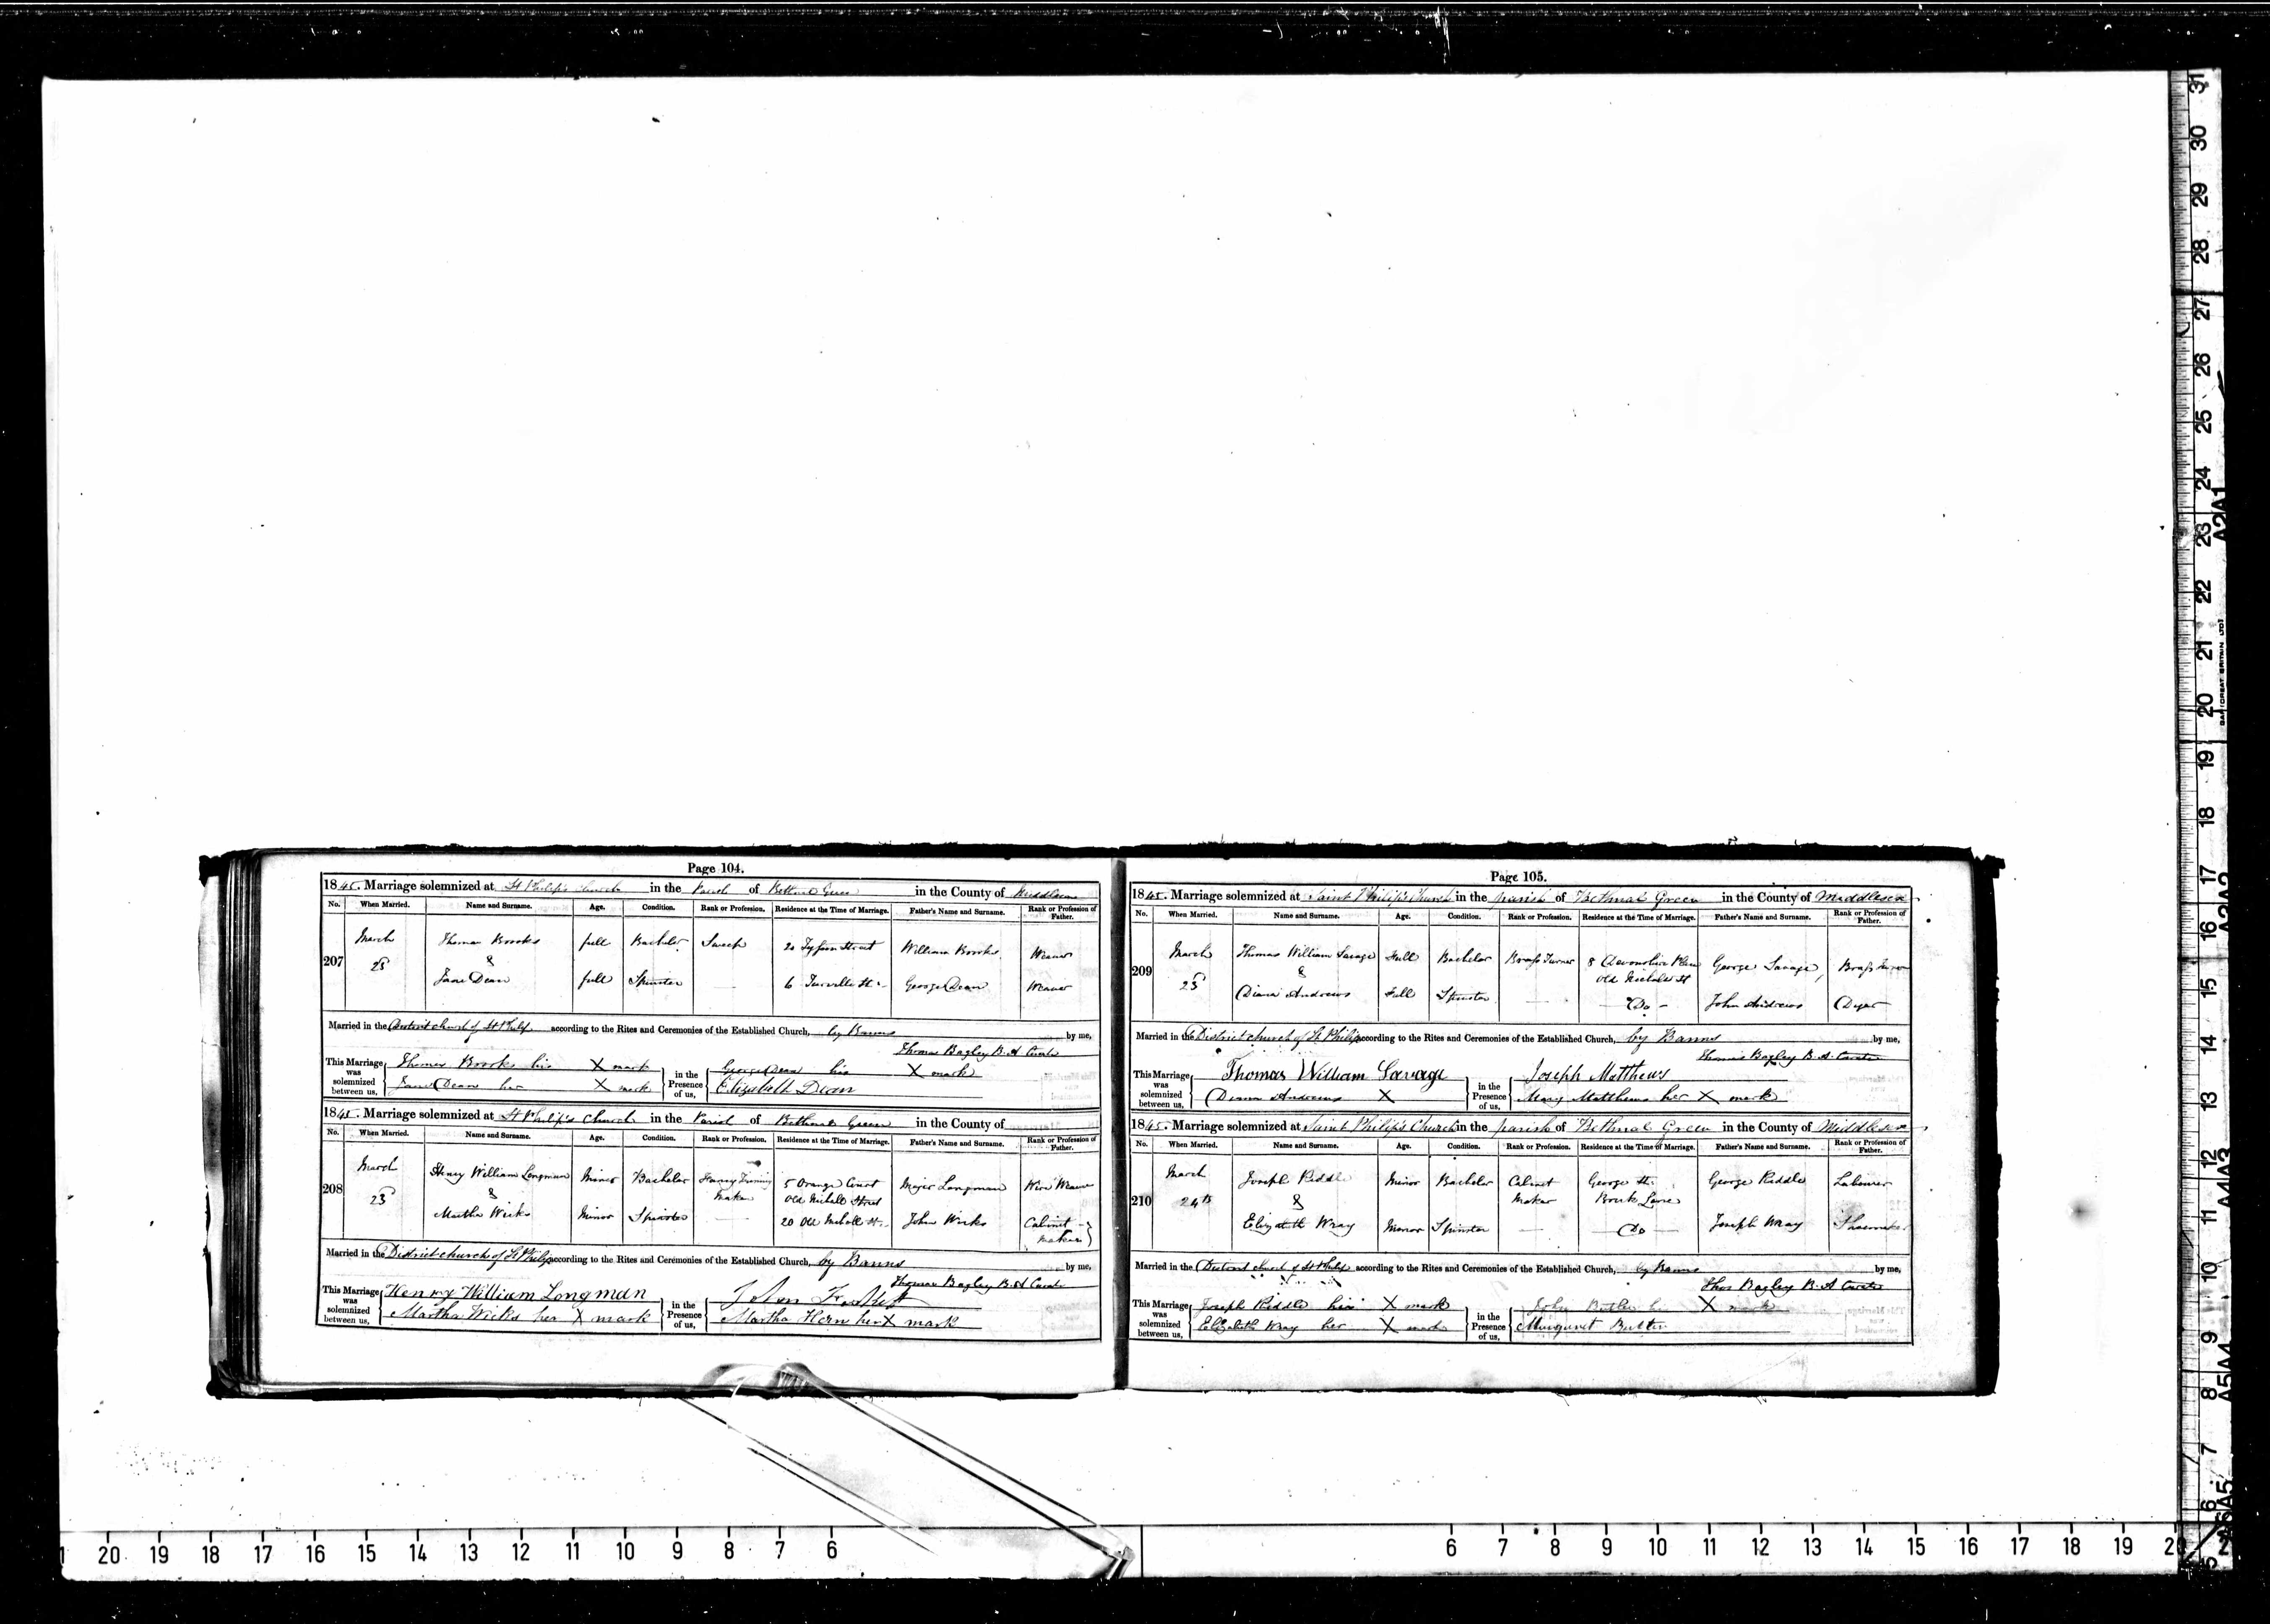 Page 104.
1845. Marriage solemnized at St Philip's Church in the Parish of Bethnal Green in the County of Middlesex
No. When Married. Name and Surname. Age. Condition. Rank or Profession. Residence at the Time of Marriage. Father's Name and Surname. Rank or Profession of Father.
207 March 23 Thomas Brooks full Bachelor Sweep 20 Tyssen Street William Brooks Weaver
&
Jane Dean full Spinster — 6 Turville St. George Dean Weaver
Married in the District church of St Philip according to the Rites and Ceremonies of the Established Church, by Banns by me,
Thomas Bagley B.A Curate
This Marriage was solemnized between us, Thomas Brooks his X mark
Jane Dean her X mark
in the Presence of us, George Dean his X mark
Elizabeth Dean
1845. Marriage solemnized at St Philip's Church in the Parish of Bethnal Green in the County of
No. When Married. Name and Surname. Age. Condition. Rank or Profession. Residence at the Time of Marriage. Father's Name and Surname. Rank or Profession of Father.
208 March 23 Henry William Longman Minor Bachelor Fancy Trimming Maker 5 Orange Court Old Nichol Street Major Longman Wire Weaver
&
Martha Wicks Minor Spinster — 20 Old Nicholl St. John Wicks Cabinet Maker
Married in the District church of St Philip according to the Rites and Ceremonies of the Established Church, by Banns by me,
Thomas Bagley B.A Curate
This Marriage was solemnized between us, Henry William Longman
Martha Wicks her X mark
in the Presence of us, John
Martha Hern her X mark
Page 105.
1845. Marriage solemnized at Saint Philip's Church in the parish of Bethnal Green in the County of Middlesex
No. When Married. Name and Surname. Age. Condition. Rank or Profession. Residence at the Time of Marriage. Father's Name and Surname. Rank or Profession of Father.
209 March 23 Thomas William Savage Full Bachelor Brass Turner 8 Devonshire Place Old Nicholes St George Savage Brass Turner
&
Diana Andrews Full Spinster — Do — John Andrews Dyer
Married in the District church of St Philip according to the Rites and Ceremonies of the Established Church, by Banns by me,
Thomas Bagley B.A. Curate
This Marriage was solemnized between us, Thomas William Savage
Diana Andrews X
in the Presence of us, Joseph Matthews
Mary Matthews her X mark
1845. Marriage solemnized at Saint Philip's Church in the parish of Bethnal Green in the County of Middlesex
No. When Married. Name and Surname. Age. Condition. Rank or Profession. Residence at the Time of Marriage. Father's Name and Surname. Rank or Profession of Father.
210 March 24th Joseph Riddle Minor Bachelor Cabinet Maker George St. Brick Lane George Riddle Labourer
&
Elizabeth Wray Minor Spinster — Do — Joseph Wray Shoemaker
Married in the District church of St Philip according to the Rites and Ceremonies of the Established Church, by Banns by me,
Thos Bagley B.A Curate
This Marriage was solemnized between us, Joseph Riddle his X mark
Elizabeth Wray her X mark
in the Presence of us, John Butler his X mark
Margaret Butler
31 30 29 28 27 26 25 24 23 22 21 20 19 18 17 16 15 14 13 12 11 10 9 8 7 6 5
A2A1
A2A2
A4A3
A5A4
A6A5
20 19 18 17 16 15 14 13 12 11 10 9 8 7 6
6 7 8 9 10 11 12 13 14 15 16 17 18 19 20